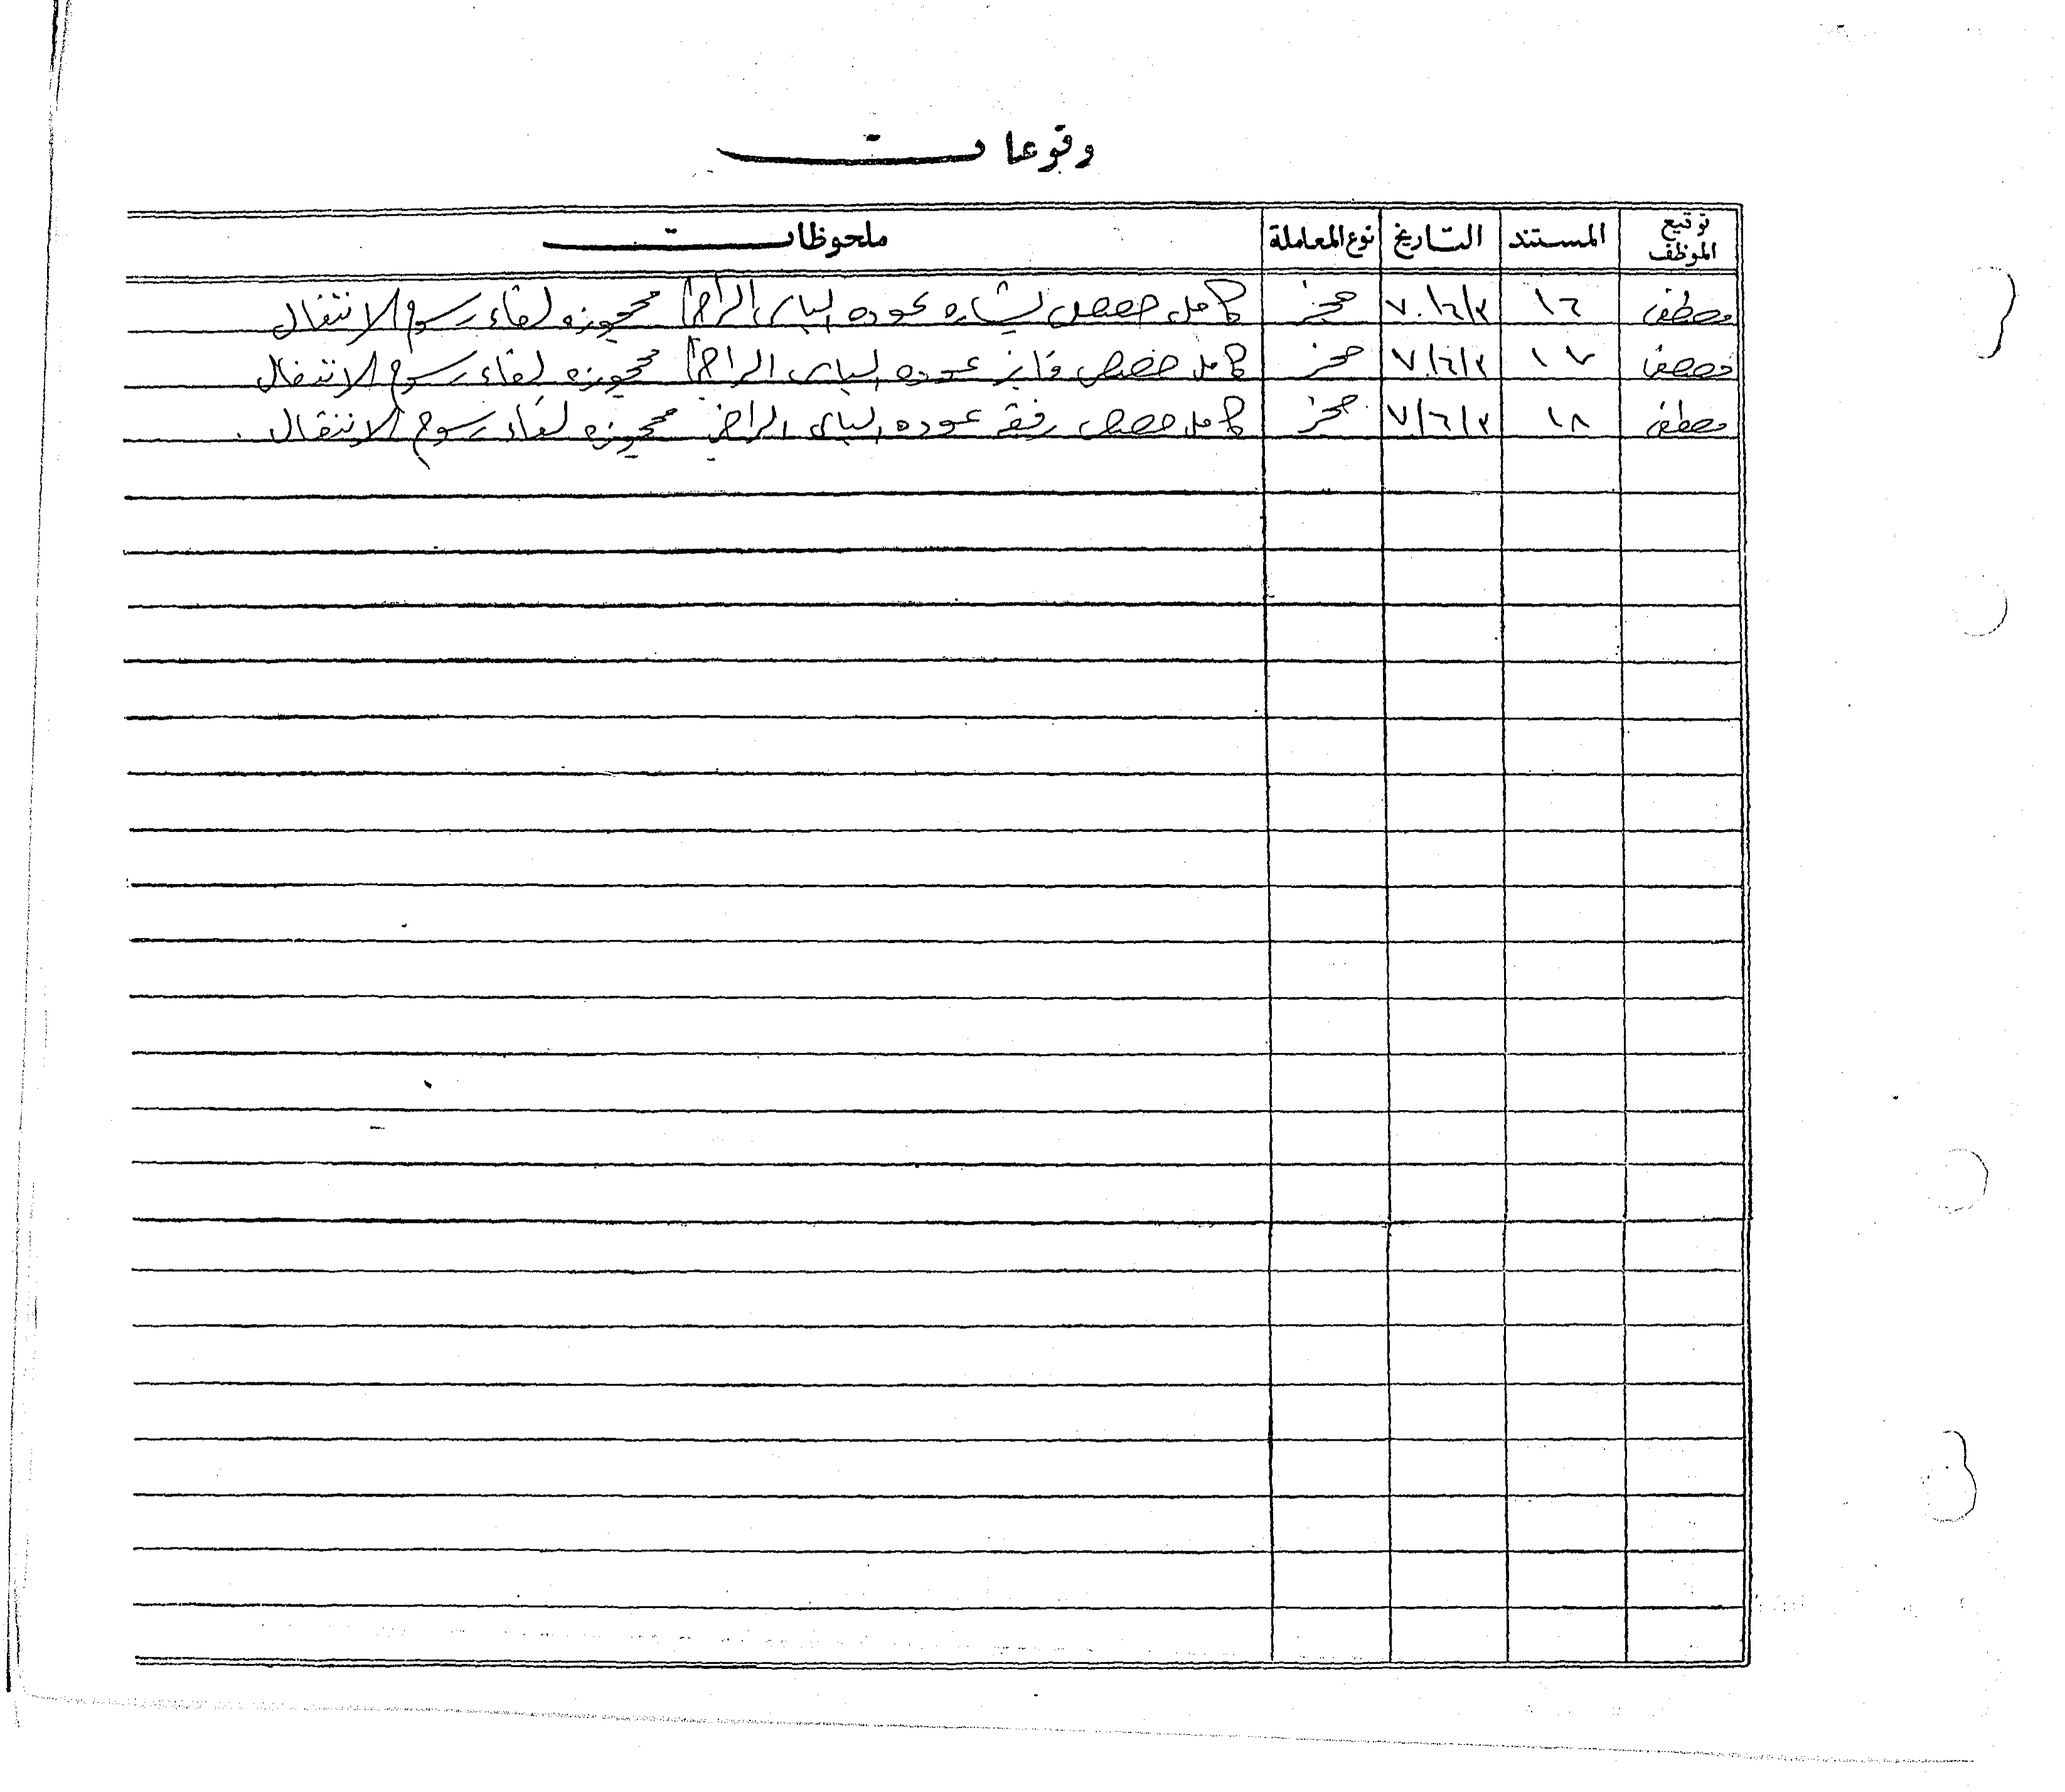 وقوعات
توقيع الموظف المستند التاريخ نوع المعاملة ملحوظات
مصطفى ١٦ ٧٠/٦/٢ حجز كامل حصص بشاره عوده محجوزه لقاء رسوم الانتقال
مصطفى ١٧ ٧٠/٦/٢ حجز كامل حصص فايز عوده محجوزه لقاء رسوم الانتقال
مصطفى ١٨ ٧/٦/٢ حجز كامل حصص عوده محجوزه لقاء رسوم الانتقال .